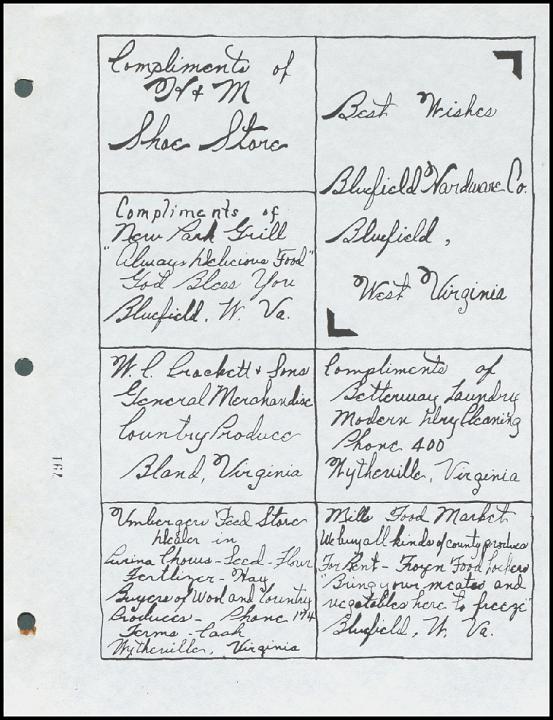 Compliments of
H & M
Shoe Store
Best Wishes
Bluefield Hardware Co.
Bluefield,
West Virginia
Compliments of
New Park Grill
"Always Delicious Food"
God Bless You
Bluefield, W. Va.
W. C. Crockett & Sons
General Merchandise
Country Produce
Bland, Virginia
Compliments of
Betterway Laundry
Modern Dry Cleaning
Phone 400
Wytheville, Virginia
Umbergers Feed Store
Dealer in
Purina Chows - Seed - Flour
Fertlizer - Hay
Buyers of Wool and Country
Produces - Phone 174
Terms - Cash
Wytheville, Virginia
Mills Food Market
We buy all kinds of county produce
For Rent - Frozen Food Lockers
"Bring your meates and
vegetables here to freeze"
Bluefield, W. Va.
791